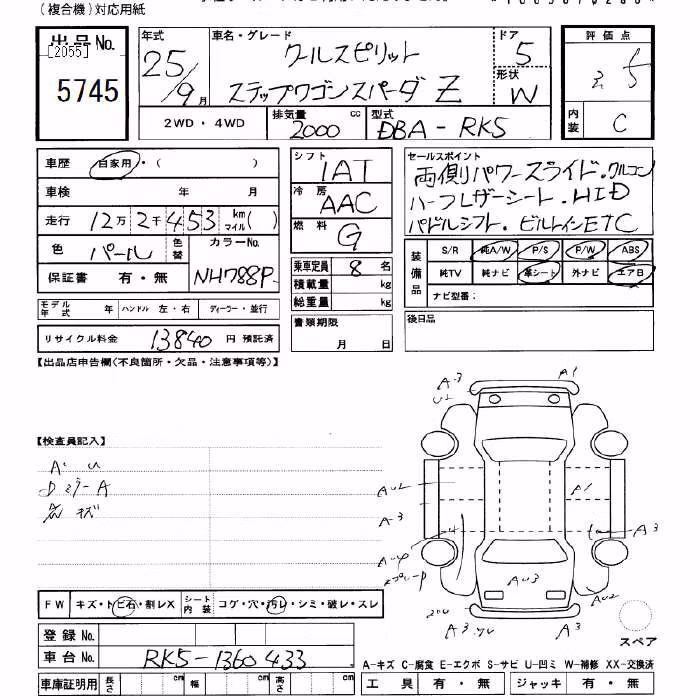 (複合機)対応用紙
出品No.
[2055]
5745
年式
25/9月
車名・グレード
クールスピリット
ステップワゴンスパーダ Z
ドア
5
形状
W
評価点
3.5
内装
C
2WD・4WD
排気量
2000 cc
型式
DBA-RK5
車歴 自家用・( )
車検 年 月
走行 12万2千453 km マイル( )
色 パール 色替
カラーNo.
NH788P
保証書 有・無
モデル年式 年 ハンドル 左・右 ディーラー・並行
リサイクル料金 13840 円 預託済
シフト
IAT
冷房
AAC
燃料
G
乗車定員 8 名
積載量 kg
総重量 kg
書類期限
月 日
セールスポイント
両側パワースライド・クルコン
ハーフレザーシート・HID
パドルシフト・ビルトインETC
装備品
S/R 純A/W P/S P/W ABS
純TV 純ナビ 革シート 外ナビ エアB
ナビ型番:
後日品
【出品店申告欄(不良箇所・欠品・注意事項等)】
【検査員記入】
A・U
DミラーA
各キズ
A3
U2
A1
AU2
A3
A1
A3
AU4
4
AU3
AU2
A3
A3
スペア
FW キズ・トビ石・割レX
シート内装 コゲ・穴・汚レ・シミ・破レ・スレ
登録No.
車台No. RK5-1360433
車庫証明用 長さ cm 幅 cm 高さ cm
A-キズ C-腐食 E-エクボ S-サビ U-凹ミ W-補修 XX-交換済
工具 有・無 ジャッキ 有・無